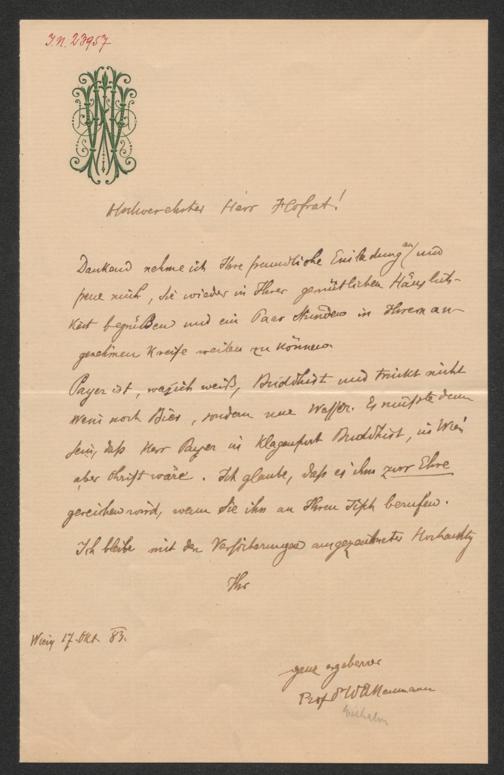 I.N. 23957
Hochverehrter Herr Hofrat!
Dankend nehme ich Ihre freundliche Einladung an und
freue mich, Sie wieder in Ihrer gemütlichen Häuslich-
keit begrüßen und ein Paar Stunden in Ihrem an-
genehmen Kreise weilen zu können.
Payer ist, was ich weiß, Buddhist und trinkt nicht
Wein noch Bier, sondern nur Wasser. Es müßte denn
sein, daß Herr Payer in Klagenfurt Buddhist, in Wien
aber Christ wäre. Ich glaube, daß es ihm zur Ehre
gereichen wird, wenn Sie ihn an Ihren Tisch berufen.
Ich bleibe mit den Versicherungen ausgezeichneter Hochachtg
Ihr
Wien 17. Okt. 83.
ganz ergebener
Prof. Neumann
Wilhelm